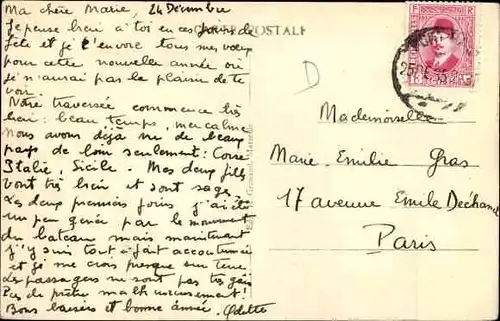 Ma chère Marie, 24 Décembre
Je pense bien à toi en ces jours de
fête et je t'envoie tous mes vœux
pour cette nouvelle année où
je n'aurai pas le plaisir de te
voir.
Notre traversée commence très
bien : beau temps, mer calme
Nous avons déjà vu de beaux
pays de loin seulement : Corse
Italie, Sicile. Mes deux fils
vont très bien et sont sages.
Les deux premiers jours j'ai été
un peu gênée par le mouvement
du bateau mais maintenant
j'y suis tout à fait accoutumée
et je me crois presque sur terre
Les passagers ne sont pas très gais
Pas de prêtre malheureusement !
Bons baisers et bonne année. Odette
POSTALE
D
Mademoiselle
Marie-Emilie Gras
17 avenue Emile Deschanel
Paris